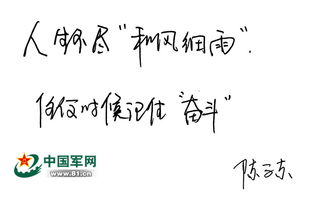 人生不尽“和风细雨”.
任何时候记住“奋斗”
中国军网
www.81.cn
陈